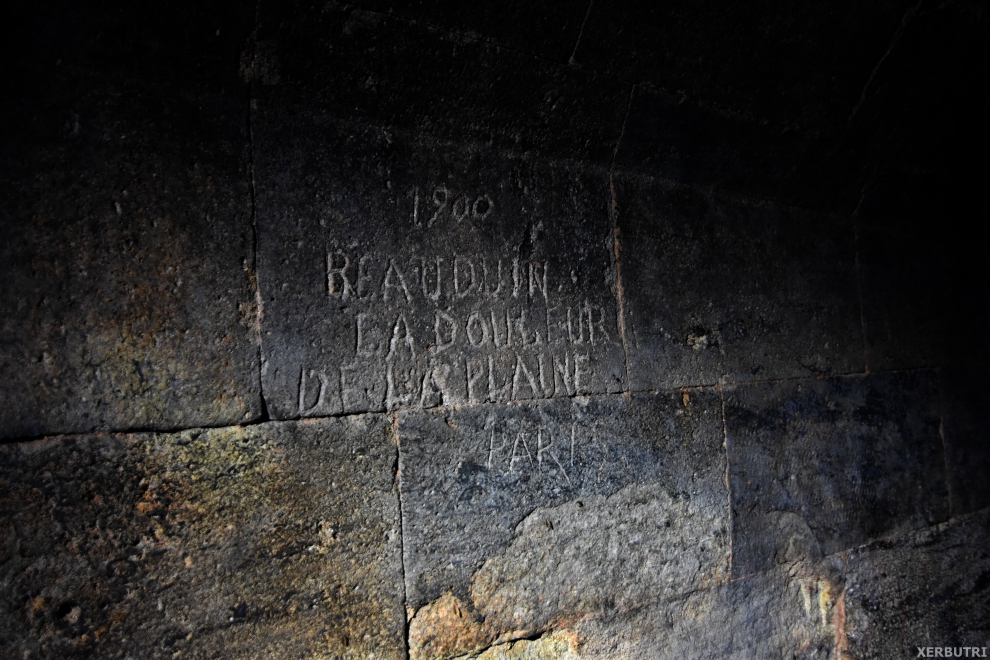 1900
BEAUDUIN
LA DOULEUR
DE LA PLAINE
PARIS
XERBUTRI